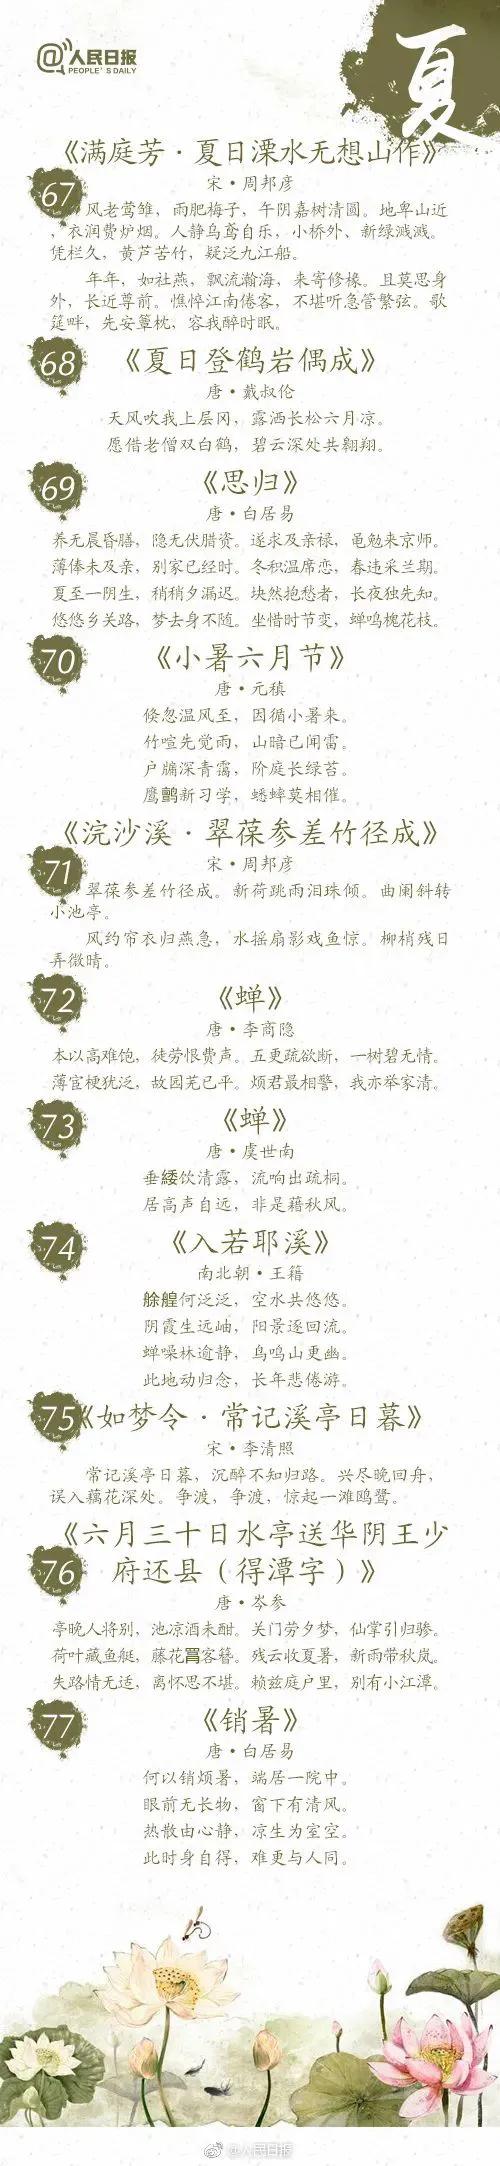 @人民日报
PEOPLE'S DAILY
夏
《满庭芳·夏日溧水无想山作》
67
宋·周邦彦
风老莺雏，雨肥梅子，午阴嘉树清圆。地卑山近
，衣润费炉烟。人静乌鸢自乐，小桥外、新绿溅溅。
凭栏久，黄芦苦竹，疑泛九江船。
年年，如社燕，飘流瀚海，来寄修椽。且莫思身
外，长近尊前。憔悴江南倦客，不堪听急管繁弦。歌
筵畔，先安簟枕，容我醉时眠。
68
《夏日登鹤岩偶成》
唐·戴叔伦
天风吹我上层冈，露洒长松六月凉。
愿借老僧双白鹤，碧云深处共翱翔。
69
《思归》
唐·白居易
养无晨昏膳，隐无伏腊资。遂求及亲禄，黾勉来京师。
薄俸未及亲，别家已经时。冬积温席恋，春违采兰期。
夏至一阴生，稍稍夕漏迟。块然抱愁者，长夜独先知。
悠悠乡关路，梦去身不随。坐惜时节变，蝉鸣槐花枝。
70
《小暑六月节》
唐·元稹
倏忽温风至，因循小暑来。
竹喧先觉雨，山暗已闻雷。
户牖深青霭，阶庭长绿苔。
鹰鹯新习学，蟋蟀莫相催。
《浣沙溪·翠葆参差竹径成》
71
宋·周邦彦
翠葆参差竹径成。新荷跳雨泪珠倾。曲阑斜转
小池亭。
风约帘衣归燕急，水摇扇影戏鱼惊。柳梢残日
弄微晴。
72
《蝉》
唐·李商隐
本以高难饱，徒劳恨费声。五更疏欲断，一树碧无情。
薄宦梗犹泛，故园芜已平。烦君最相警，我亦举家清。
73
《蝉》
唐·虞世南
垂緌饮清露，流响出疏桐。
居高声自远，非是藉秋风。
74
《入若耶溪》
南北朝·王籍
艅艎何泛泛，空水共悠悠。
阴霞生远岫，阳景逐回流。
蝉噪林逾静，鸟鸣山更幽。
此地动归念，长年悲倦游。
75
《如梦令·常记溪亭日暮》
宋·李清照
常记溪亭日暮，沉醉不知归路。兴尽晚回舟，
误入藕花深处。争渡，争渡，惊起一滩鸥鹭。
《六月三十日水亭送华阴王少
76
府还县（得潭字）》
唐·岑参
亭晚人将别，池凉酒未酣。关门劳夕梦，仙掌引归骖。
荷叶藏鱼艇，藤花罥客簪。残云收夏暑，新雨带秋岚。
失路情无适，离怀思不堪。赖兹庭户里，别有小江潭。
77
《销暑》
唐·白居易
何以销烦暑，端居一院中。
眼前无长物，窗下有清风。
热散由心静，凉生为室空。
此时身自得，难更与人同。
@人民日报